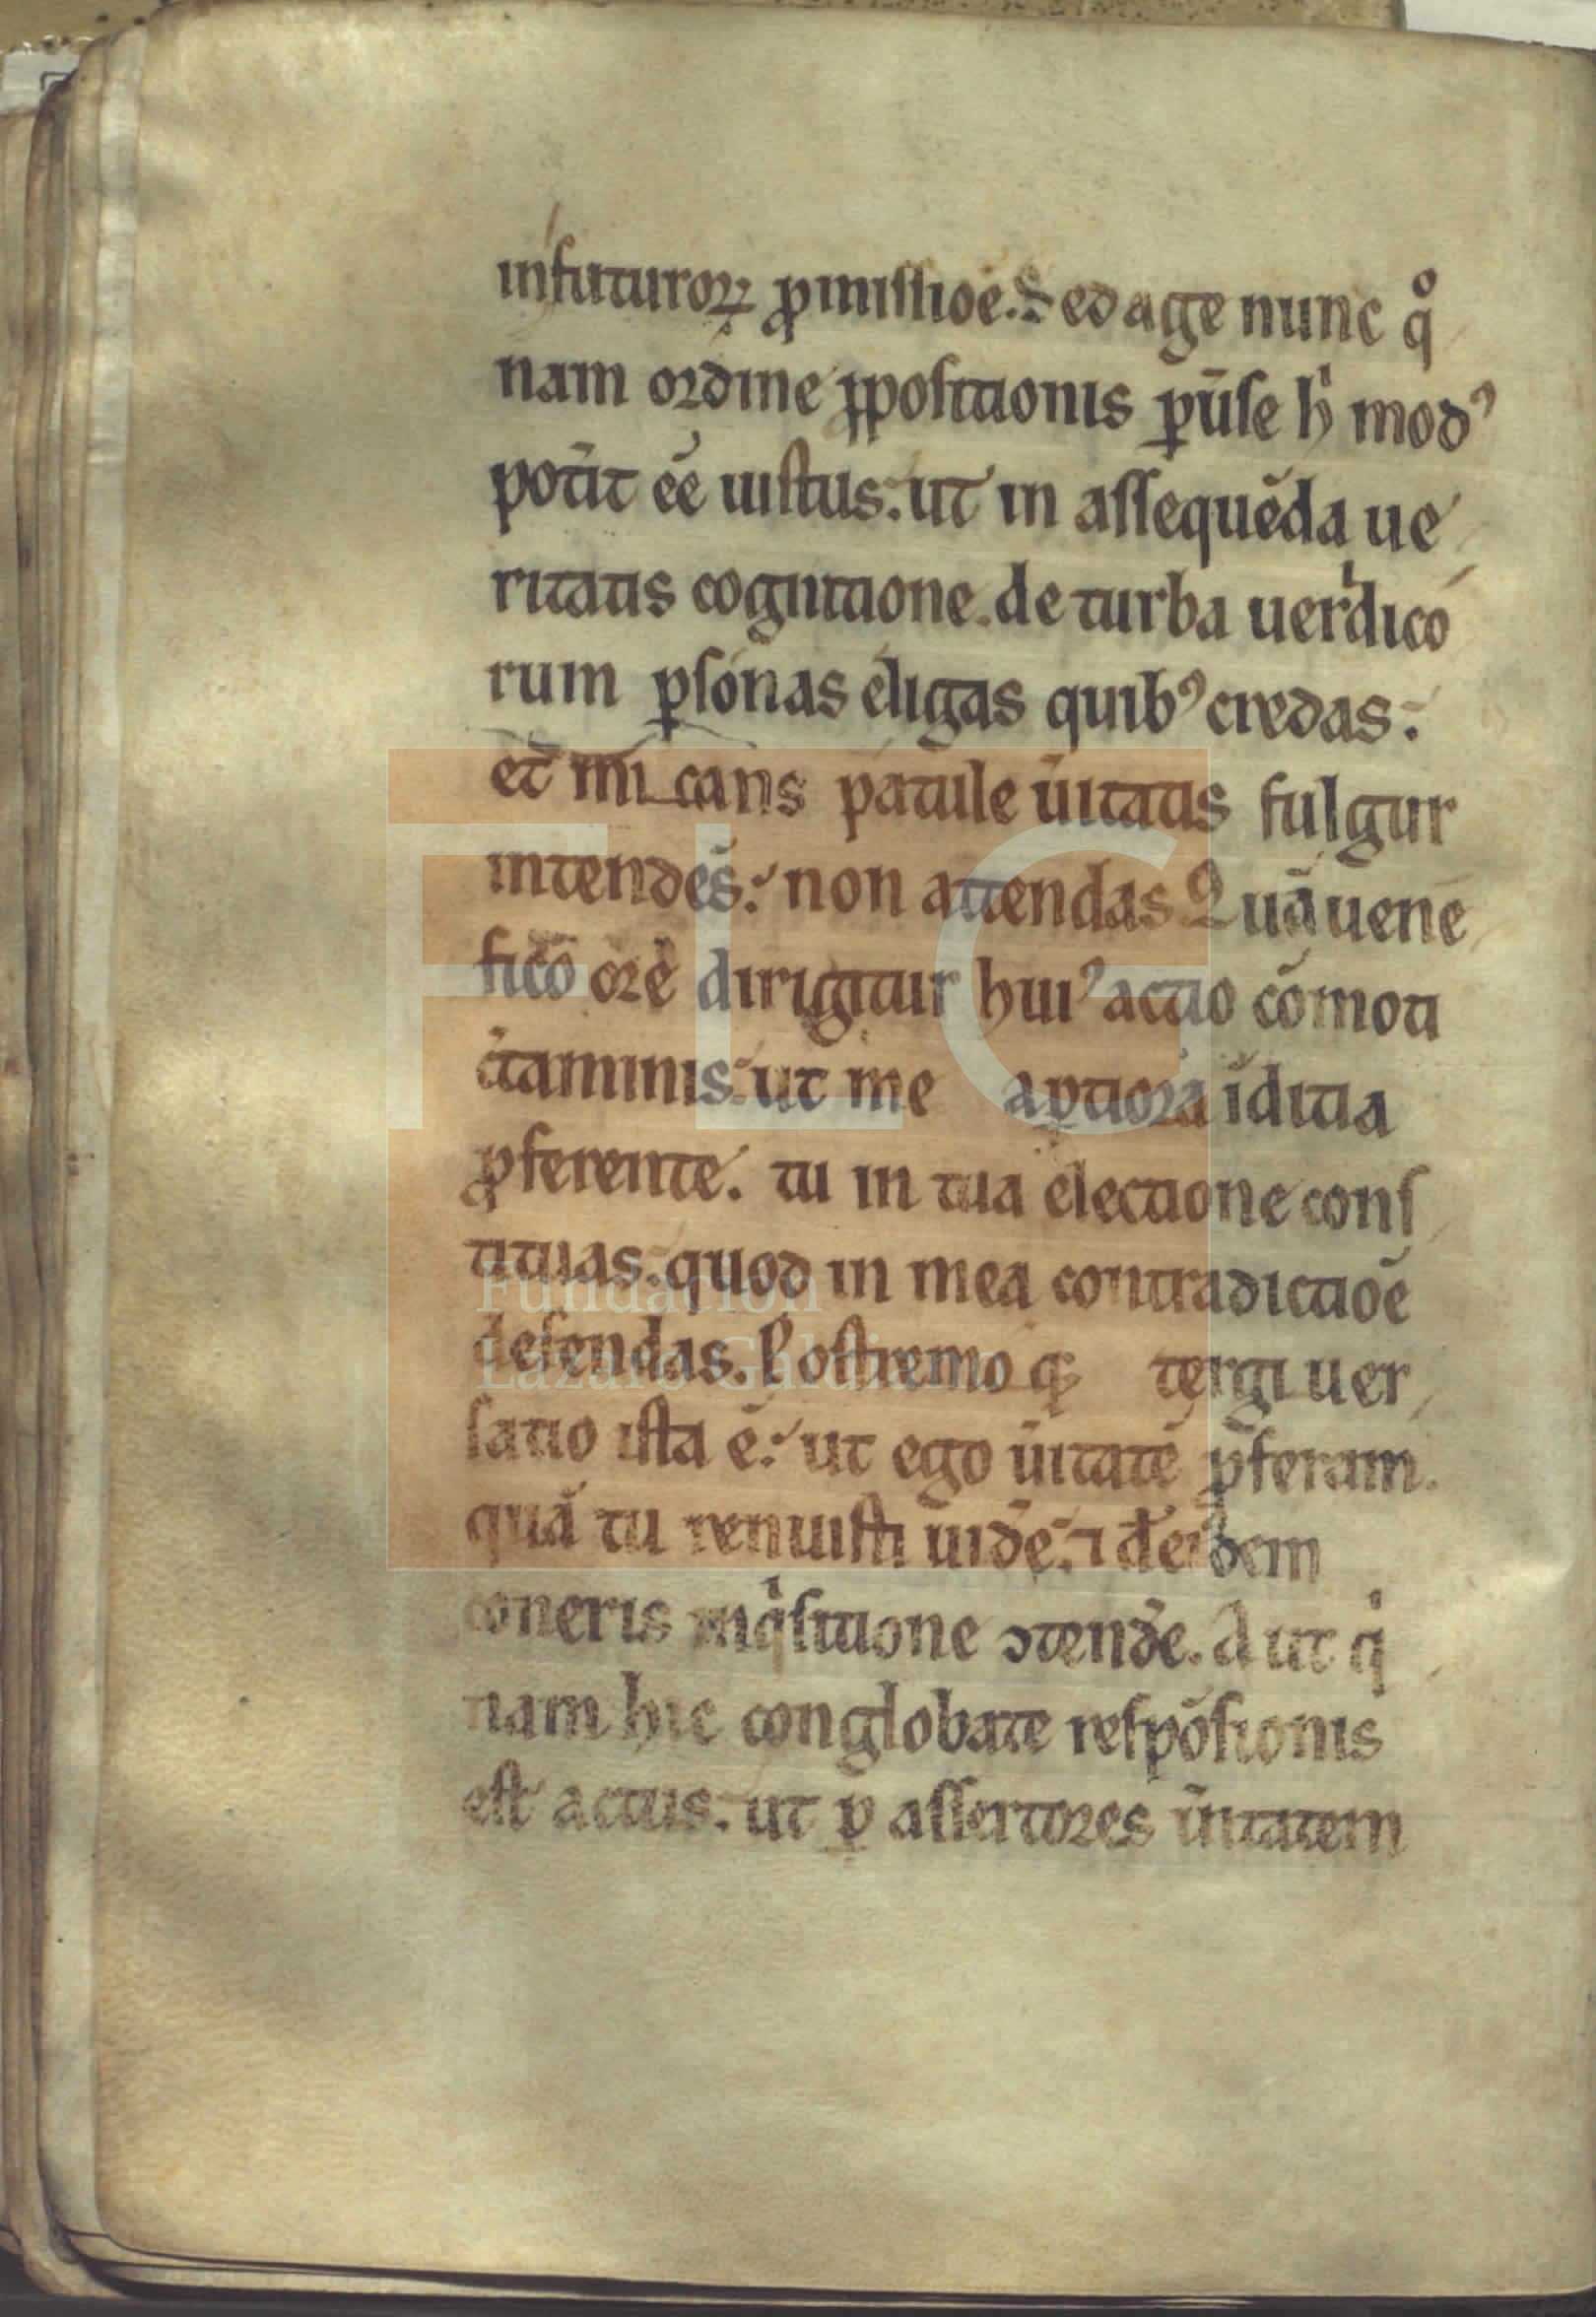 infuturoꝝ ꝓmissioē. Sed age nunc qͦ
nam ordine ꝓpositionis ꝑūse hͥ modꝰ
potīt ēē iustus. ut in assequēda ue
ritatis cognitione. de turba ueridico
rum ꝑsonas eligas quibꝰ credas.
et micans patule ūitatis fulgur
intendēs. non attendas Quā uene
fico ore dirigitur huiꝰ actio cōmoti
c̄taminis. ut me aꝑtiora īditia
ꝓferente. tu in tua electione cons
tituas. quod in mea contradictioē
defendas. Postremo qꝫ tergiuer
satio ista ē. ut ego ūitatē p̄feram.
quā tu renuisti uid̄e. ⁊ de eidem
coneris inqͥsitione ↄtend̄e. Aut qͥ
nam hic conglobate respōsionis
est actus. ut ꝑ assertores ūitatem
FLG
Fundación
Lázaro Galdiano